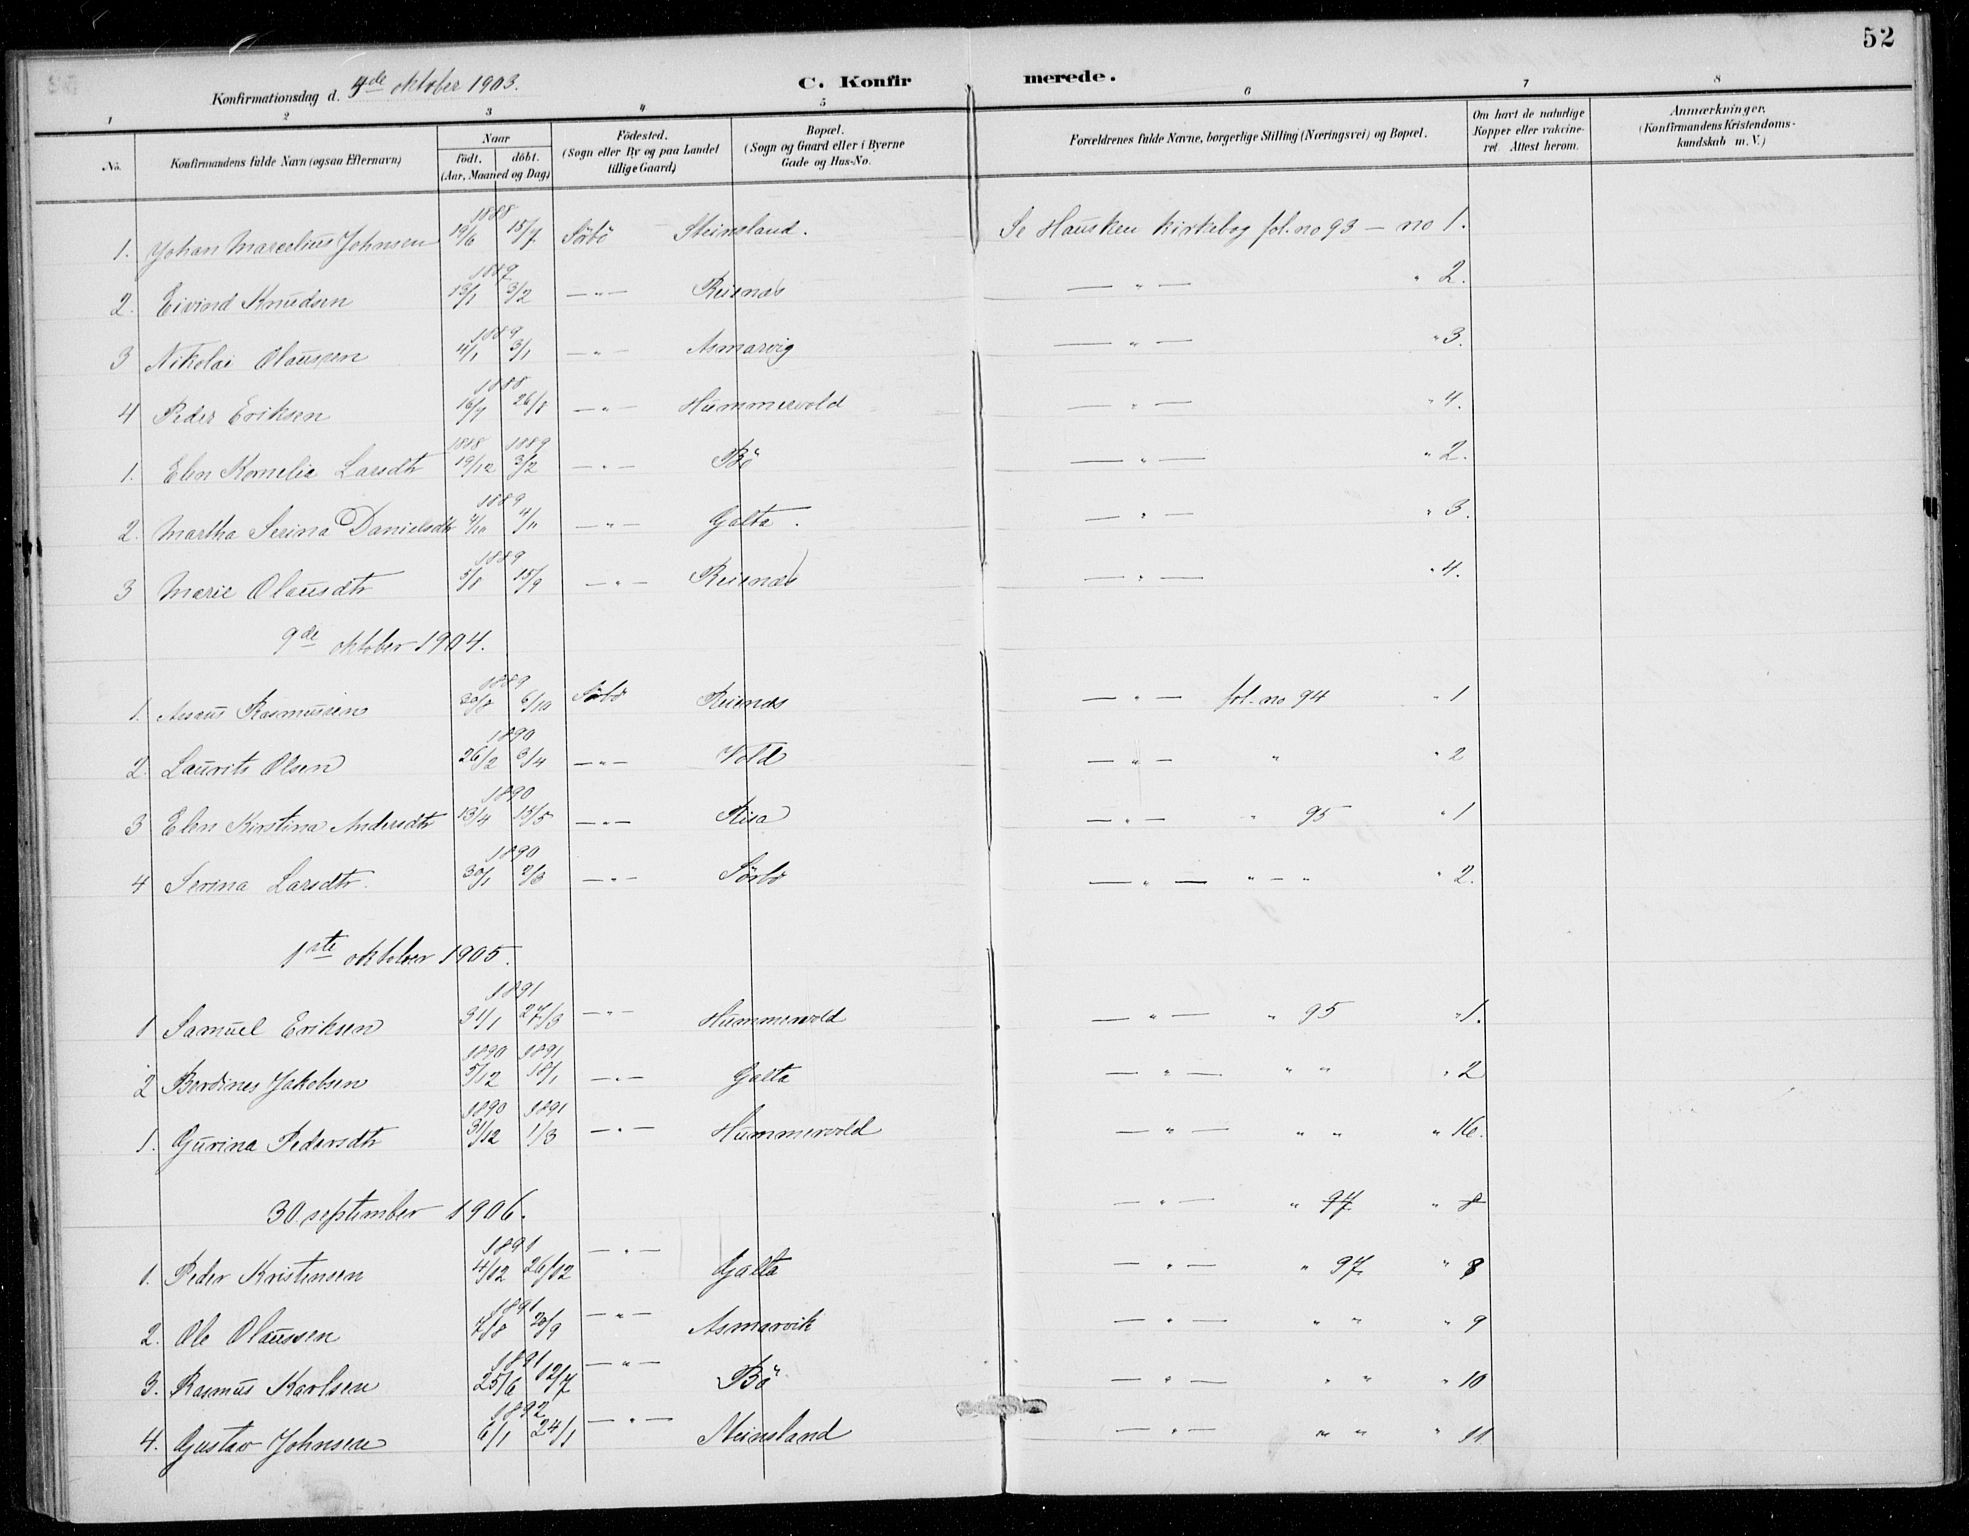 52
Konfirmationsdag d. 4de oktober 1903. C. Konfir merede.
1 2 3 4 5 6 7 8
No. Konfirmandens fulde Navn (ogsaa Efternavn) Naar Födt. döbt. (Aar, Maaned og Dag) Födested. (Sogn eller By og paa Landet tillige Gaard) Bopæl. (Sogn og Gaard eller i Byerne Gade og Hus-No. Forældrenes fulde Navne, borgerlige Stilling (Næringsvei) og Bopæl. Om havt de naturlige Kopper eller vakcineret. Attest herom. Anmærkninger. (Konfirmandens Kristendomskundskab m. V.)
1. Johan Marcelius Johnsen 1888 14/6 15/7 Sörbö Steinsland. Se Hausken kirkebog fol. no 93 — no 1.
2. Eivind Knudsen 1889 13/1 3/2 — " — Reienæs — " — " 2.
3 Nikolai Olaussen 1889 4/1 3/1 — " — Asmarvig — " — " 3.
4 Peder Eriksen 1888 16/7 26/8 — " — Hummervold — " — " 4.
1. Elen Kornelia Larsdtr 1888 19/12 1889 3/2 — " — Bö — " — " 2.
2. Martha Serina Danielsdtr 1889 4/10 4/11 — " — Galta. — " — " 3.
3 Marie Olausdtr 1889 5/8 15/9 — " — Reienæs — " — " 4.
9de oktober 1904.
1. Rasmussen 1889 30/8 6/10 Sörbö Reienæs — " — fol. no 94 " 1
2. Laurits Olsen 1890 26/2 3/4 — " — Vold — " — " " 2
3 Elen Kirstina Andersdtr 1890 13/4 15/5 — " — Risa — " — " 95 " 1
4 Serina Larsdtr. 1890 30/1 2/3 — " — Sörbö — " — " — " " 2.
1ste oktober 1905.
1 Samuel Eriksen 1891 31/1 27/3 — " — Hummervold — " — " 95 " 1.
2 Berdines Jakobsen 1890 5/12 1891 18/1 — " — Galta — " — " " " 2
1. Gurina Pedersdtr 1890 31/12 1891 1/3 — " — Hummervold — " — " " " 16.
30 september 1906. — " — " 97 " 8
1. Peder Kristensen 1891 4/12 26/12 — " — Galta — " — " 97. " 8
2. Ole Olaussen 1891 7/8 20/9 — " — Asmarvik — " — " " " 9
3. Rasmus Karlsen 1891 25/6 12/7 — " — Bö — " — " " " 10
4. Gustav Johnsen 1892 6/1 24/1 — " — Steinsland — " — " " " 11